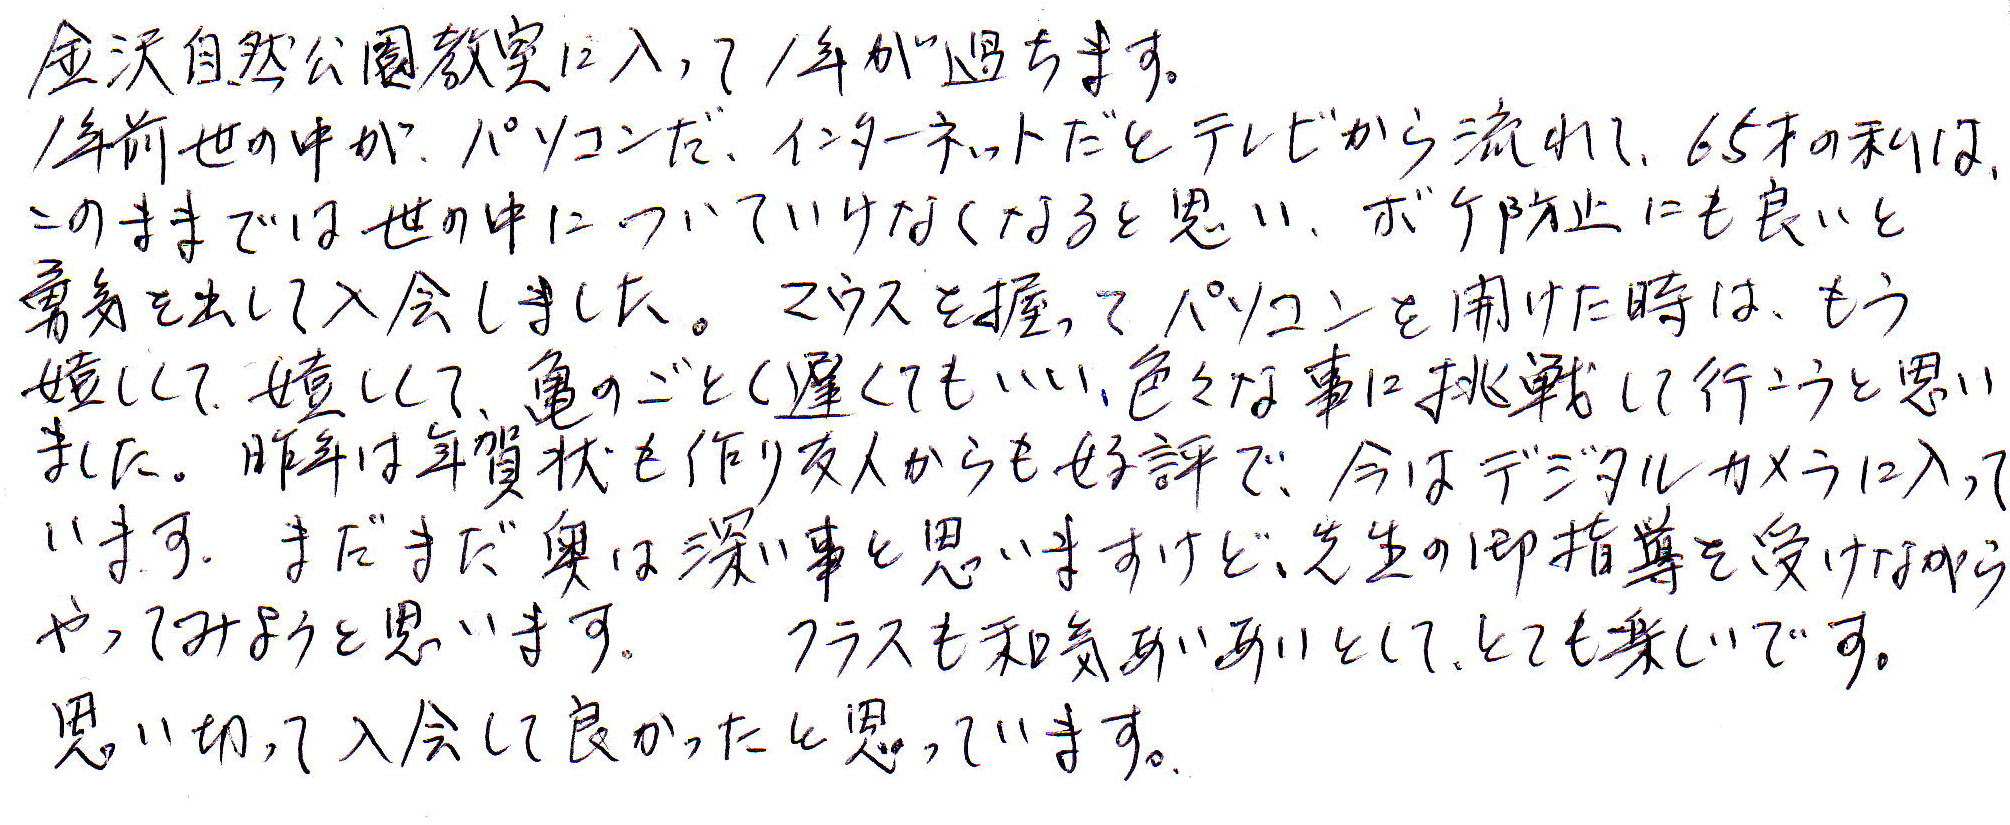 金沢自然公園教室に入って1年が過ちます。
1年前世の中が、パソコンだ、インターネットだとテレビから流れて、65才の私は、
このままでは世の中についていけなくなると思い、ボケ防止にも良いと
勇気を出して入会しました。マウスを握ってパソコンを開けた時は、もう
嬉しくて、嬉しくて、亀のごとく遅くてもいい、色々な事に挑戦して行こうと思い
ました。昨年は年賀状も作り友人からも好評で、今はデジタルカメラに入って
います。まだまだ奥は深い事と思いますけど、先生の御指導を受けながら
やってみようと思います。クラスも和気あいあいとして、とても楽しいです。
思い切って入会して良かったと思っています。